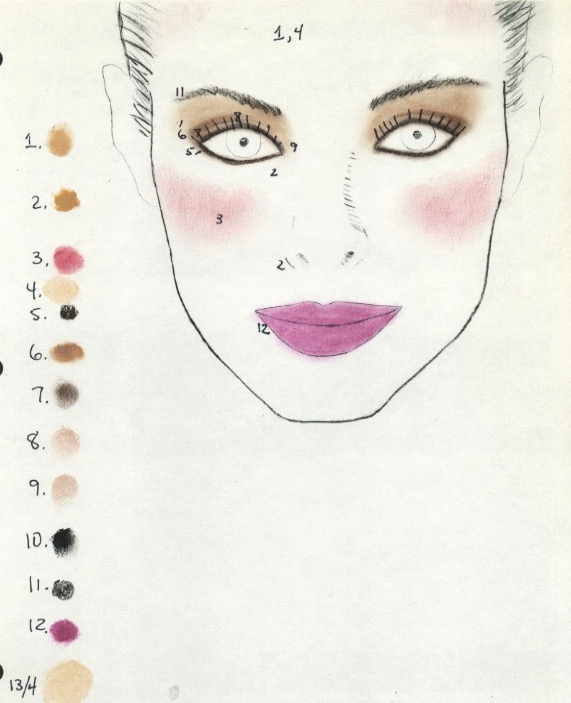 1,4
11
8
6 7
5
9
2
3
2
12
1.
2.
3.
4.
5.
6.
7.
8.
9.
10.
11.
12.
13/4